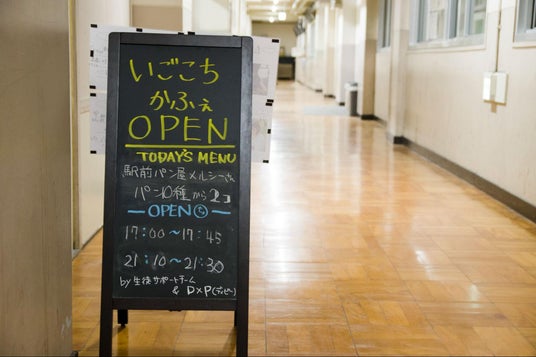 いごこち
かふぇ
OPEN
TODAY'S MENU
駅前パン屋メルシーさん
パン10種から2コ
OPEN
17:00～17:45
21:10～21:30
by 生徒サポートチーム
& D×P(ディーピー)